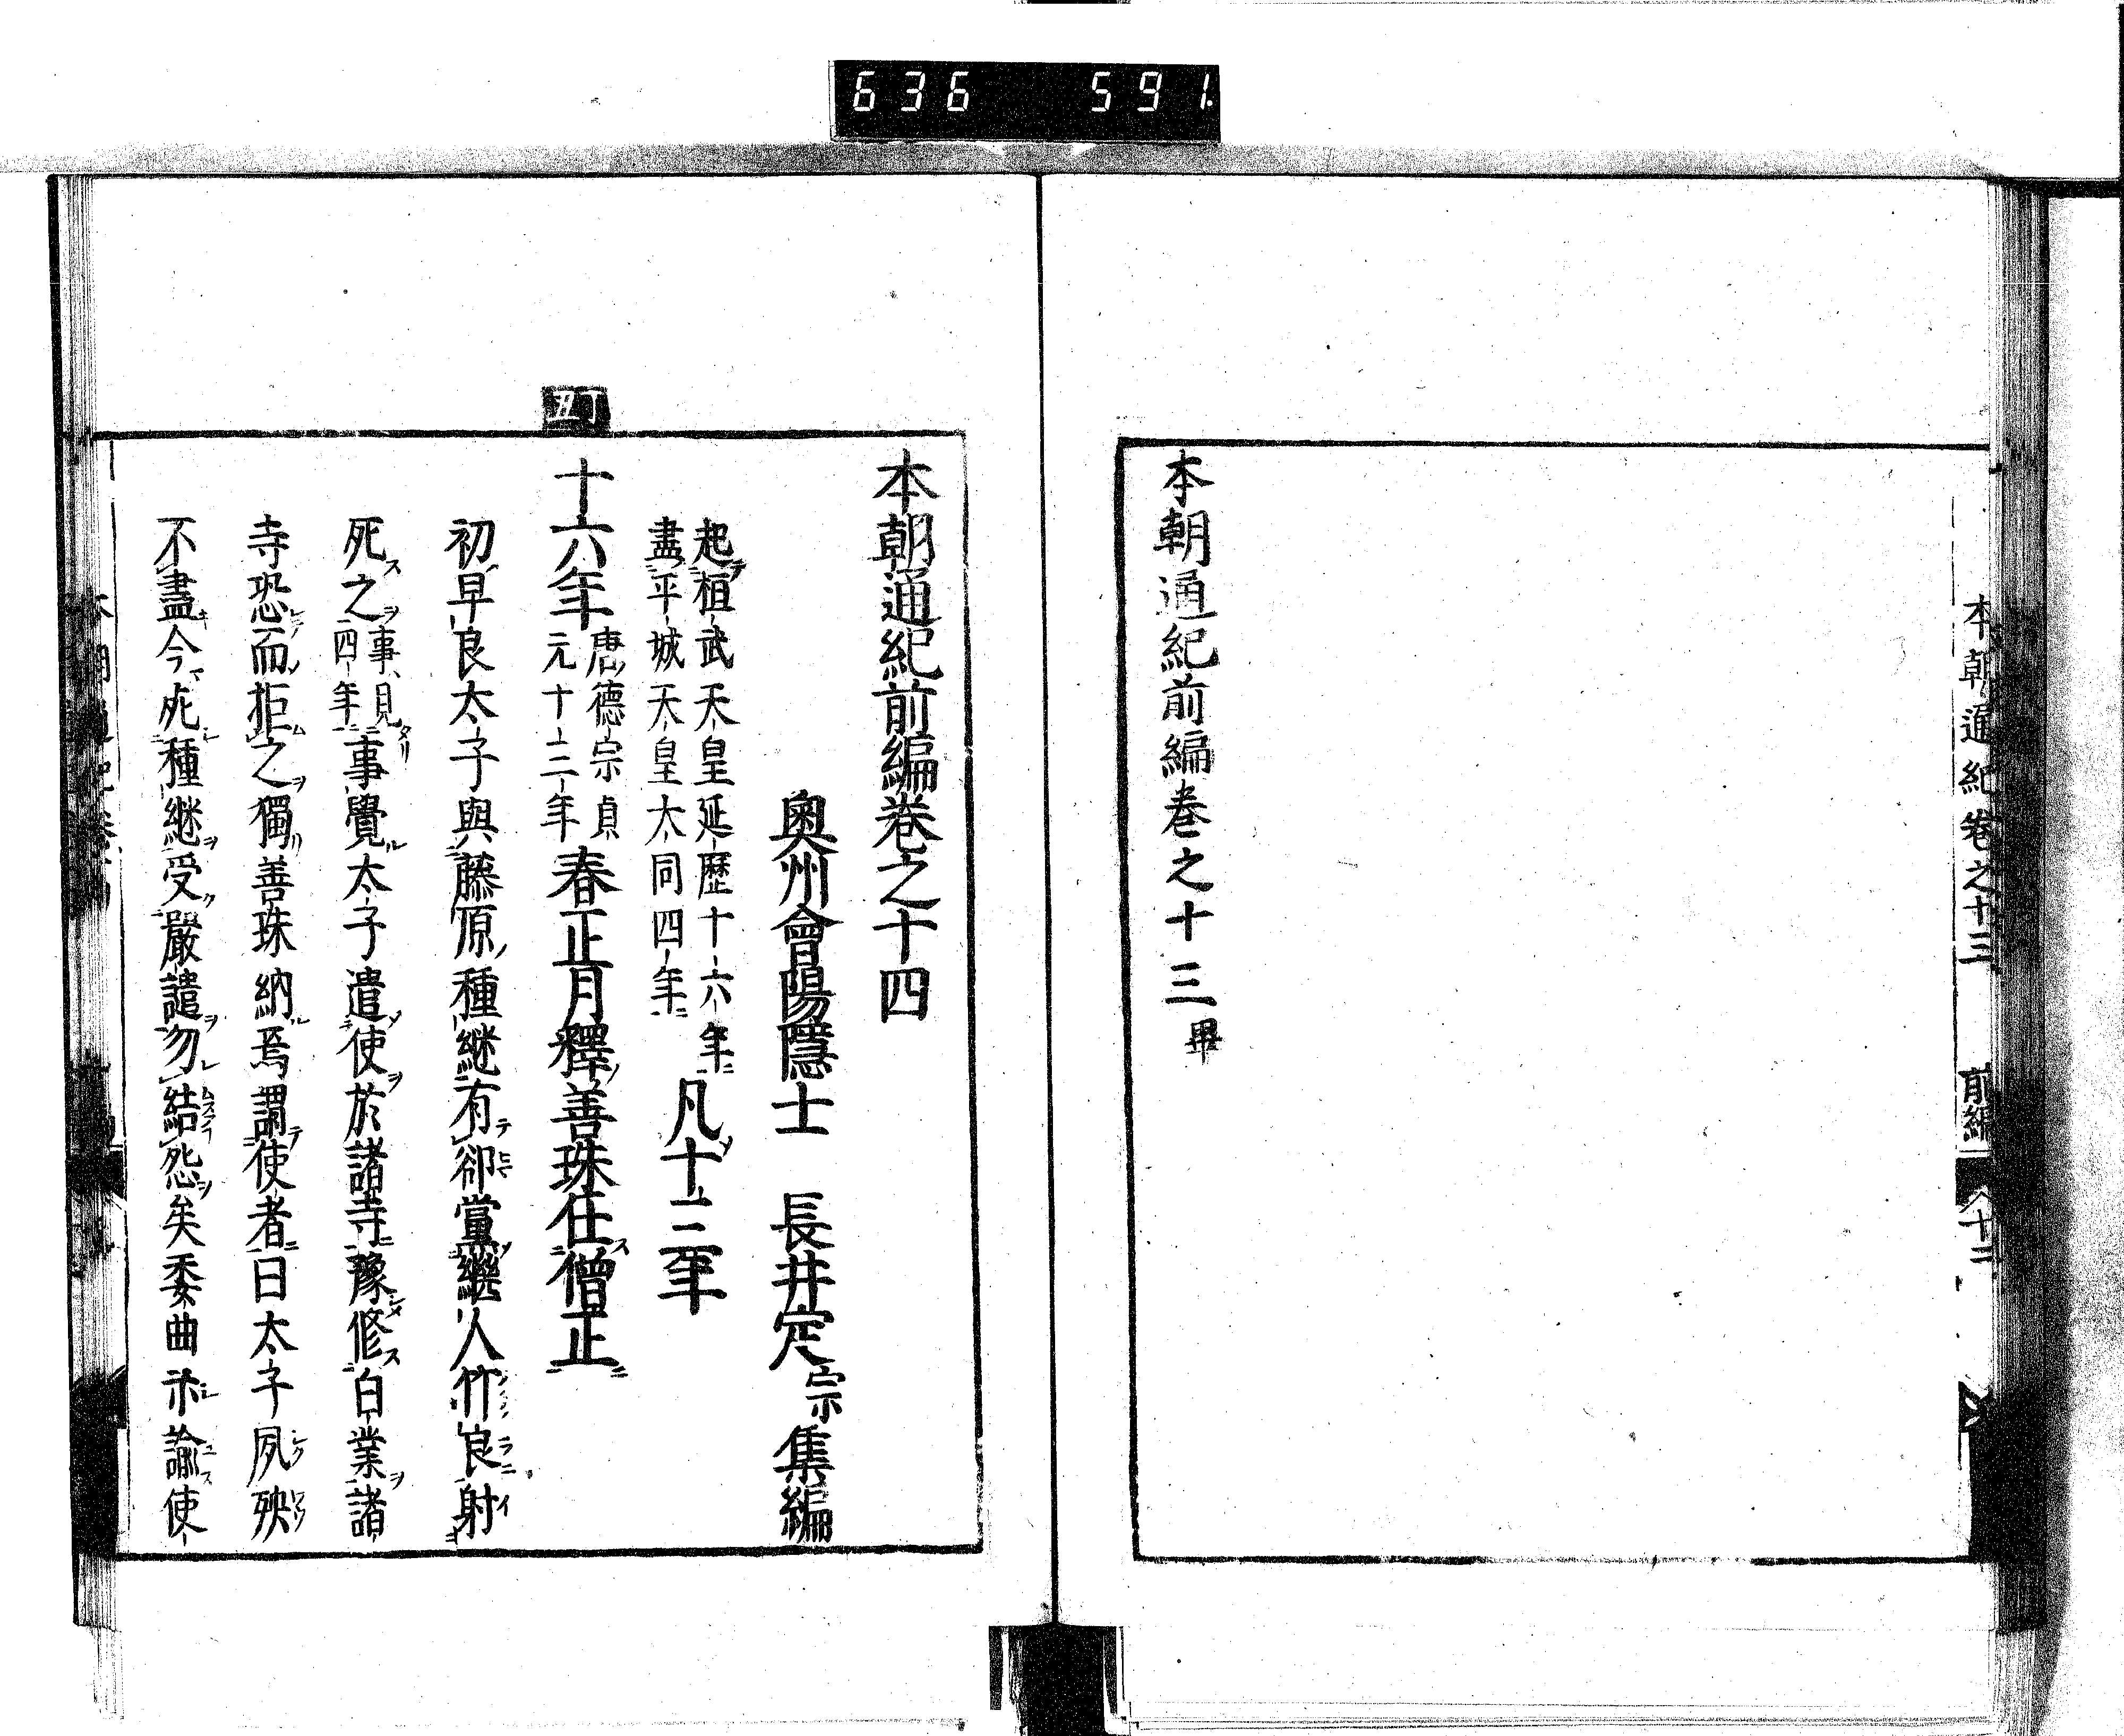 636 591.
本朝通紀卷之十三 前編 十二
本朝通紀前編卷之十三畢
本朝通紀前編卷之十四
奧州會陽隱士 長井定宗集編
起桓武天皇延歷十六年
盡平城天皇大同四年
凡十三年
丁丑
十六年
唐德宗貞
元十三年
春正月釋善珠任僧正
初早良太子與藤原種継有卻黨継人竹良射
死之
事見
四年
事覺太子遣使於諸寺豫修白業諸
寺恐而拒之獨善珠納焉謂使者曰太子夙殃
不盡今死種継受嚴譴勿結怨矣委曲示諭使